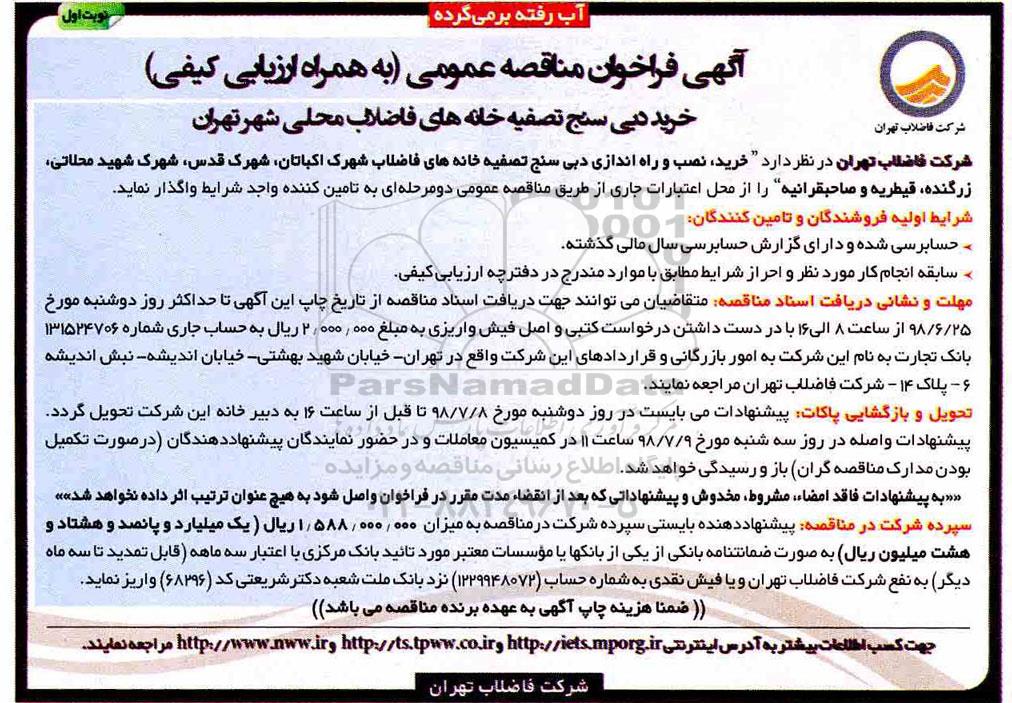 آب رفته برمی‌گرده
نوبت اول
آگهی فراخوان مناقصه عمومی (به همراه ارزیابی کیفی)
خرید دبی سنج تصفیه خانه های فاضلاب محلی شهر تهران
شرکت فاضلاب تهران
شرکت فاضلاب تهران در نظر دارد "خرید، نصب و راه اندازی دبی سنج تصفیه خانه های فاضلاب شهرک اکباتان، شهرک قدس، شهرک شهید محلاتی،
زرگنده، قیطریه و صاحبقرانیه" را از محل اعتبارات جاری از طریق مناقصه عمومی دومرحله‌ای به تامین کننده واجد شرایط واگذار نماید.
شرایط اولیه فروشندگان و تامین کنندگان:
حسابرسی شده و دارای گزارش حسابرسی سال مالی گذشته.
سابقه انجام کار مورد نظر و احراز شرایط مطابق با موارد مندرج در دفترچه ارزیابی کیفی.
مهلت و نشانی دریافت اسناد مناقصه: متقاضیان می توانند جهت دریافت اسناد مناقصه از تاریخ چاپ این آگهی تا حداکثر روز دوشنبه مورخ
۹۸/۶/۲۵ از ساعت ۸ الی ۱۶ با در دست داشتن درخواست کتبی و اصل فیش واریزی به مبلغ ۲,۰۰۰,۰۰۰ ریال به حساب جاری شماره ۱۳۱۵۲۴۷۰۶
بانک تجارت به نام این شرکت به امور بازرگانی و قراردادهای این شرکت واقع در تهران- خیابان شهید بهشتی- خیابان اندیشه- نبش اندیشه
۶ - پلاک ۱۴ - شرکت فاضلاب تهران مراجعه نمایند.
تحویل و بازگشایی پاکات: پیشنهادات می بایست در روز دوشنبه مورخ ۹۸/۷/۸ تا قبل از ساعت ۱۶ به دبیر خانه این شرکت تحویل گردد.
پیشنهادات واصله در روز سه شنبه مورخ ۹۸/۷/۹ ساعت ۱۱ در کمیسیون معاملات و در حضور نمایندگان پیشنهاددهندگان (درصورت تکمیل
بودن مدارک مناقصه گران) باز و رسیدگی خواهد شد.
««به پیشنهادات فاقد امضاء، مشروط، مخدوش و پیشنهاداتی که بعد از انقضاء مدت مقرر در فراخوان واصل شود به هیچ عنوان ترتیب اثر داده نخواهد شد»»
سپرده شرکت در مناقصه: پیشنهاددهنده بایستی سپرده شرکت در مناقصه به میزان ۱,۵۸۸,۰۰۰,۰۰۰ ریال ( یک میلیارد و پانصد و هشتاد و
هشت میلیون ریال) به صورت ضمانتنامه بانکی از یکی از بانکها یا مؤسسات معتبر مورد تائید بانک مرکزی با اعتبار سه ماهه (قابل تمدید تا سه ماه
دیگر) به نفع شرکت فاضلاب تهران و یا فیش نقدی به شماره حساب (۱۲۲۹۹۴۸۰۷۲) نزد بانک ملت شعبه دکتر شریعتی کد (۶۸۲۹۶) واریز نماید.
(( ضمنا هزینه چاپ آگهی به عهده برنده مناقصه می باشد))
جهت کسب اطلاعات بیشتر به آدرس اینترنتی http://iets.mporg.ir و http://ts.tpww.co.ir و http://www.nww.ir مراجعه نمایند.
شرکت فاضلاب تهران
ParsNamadData
پایگاه اطلاع رسانی مناقصه و مزایده